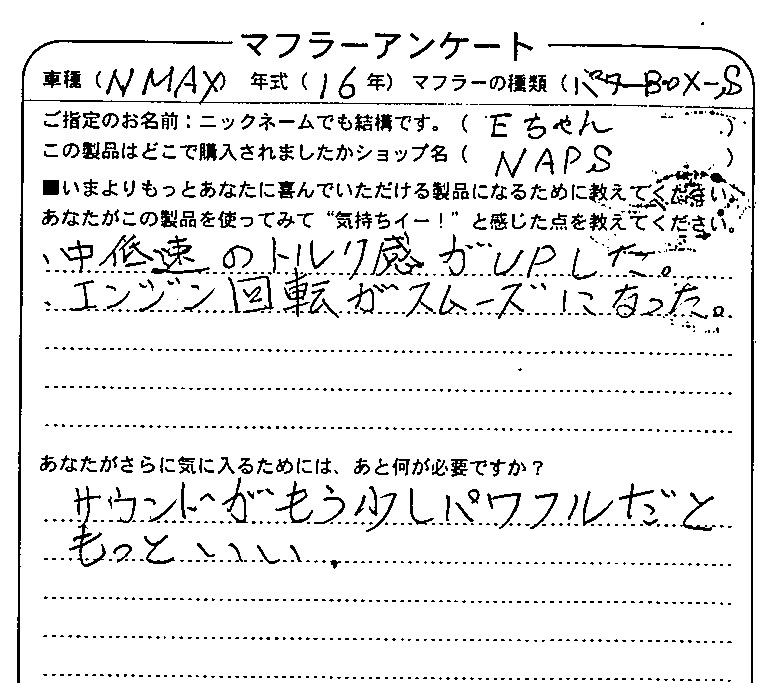 マフラーアンケート
車種（NMAX） 年式（16年） マフラーの種類（パワーBOX-S
ご指定のお名前：ニックネームでも結構です。（ Eちゃん ）
この製品はどこで購入されましたかショップ名（ NAPS ）
■いまよりもっとあなたに喜んでいただける製品になるために教えてください。
あなたがこの製品を使ってみて“気持ちイー！”と感じた点を教えてください。
、中低速のトルク感がUPした。
、エンジン回転がスムーズになった。
あなたがさらに気に入るためには、あと何が必要ですか？
サウンドがもう少しパワフルだと
もっといい．